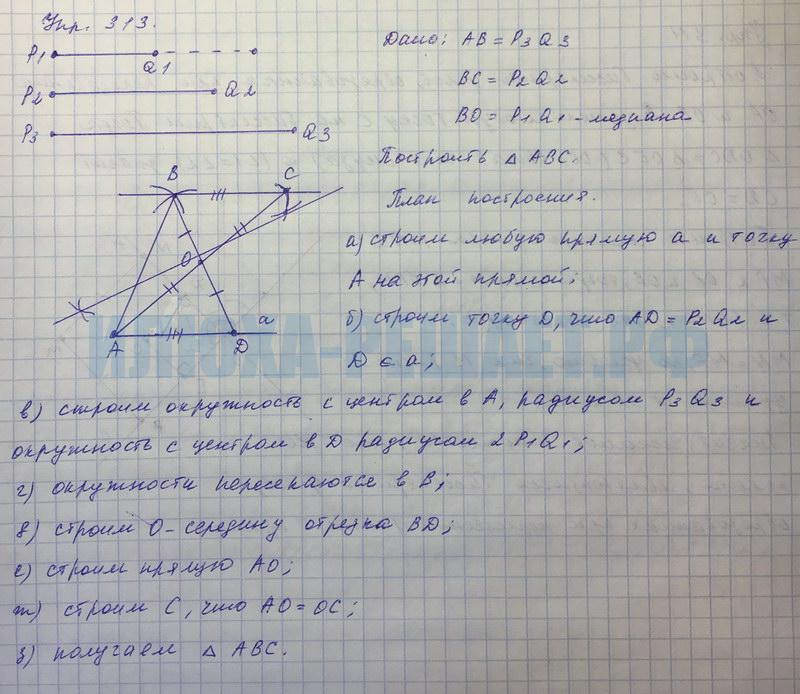 Упр. 313.
P1 Q1
P2 Q2
P3 Q3
Дано: AB = P3Q3
BC = P2Q2
BO = P1Q1 - медиана
Построить △ ABC.
План построения.
а) строим любую прямую а и точку
А на этой прямой;
б) строим точку D, что AD = P2Q2 и
D ∈ a;
B C
O
а
A D
ИЛЮХА-РЕШАЕТ.РФ
в) строим окружность с центром в А, радиусом P3Q3 и
окружность с центром в D радиусом 2P1Q1;
г) окружности пересекаются в В;
д) строим О - середину отрезка BD;
е) строим прямую АО;
ж) строим С, что АО = ОС;
з) получаем △ АВС.